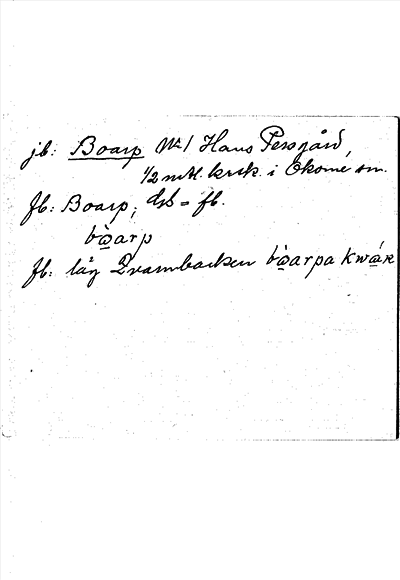 jb: Boarp Nr 1 Hans Persgård,
1/2 mtl. krsk. i Okome sn.
fb: Boarp; dsb = fb.
bo̲̊̀arp
fb: låg Qvarnbacken bo̲̊̀arpa kwo̲̊́rn